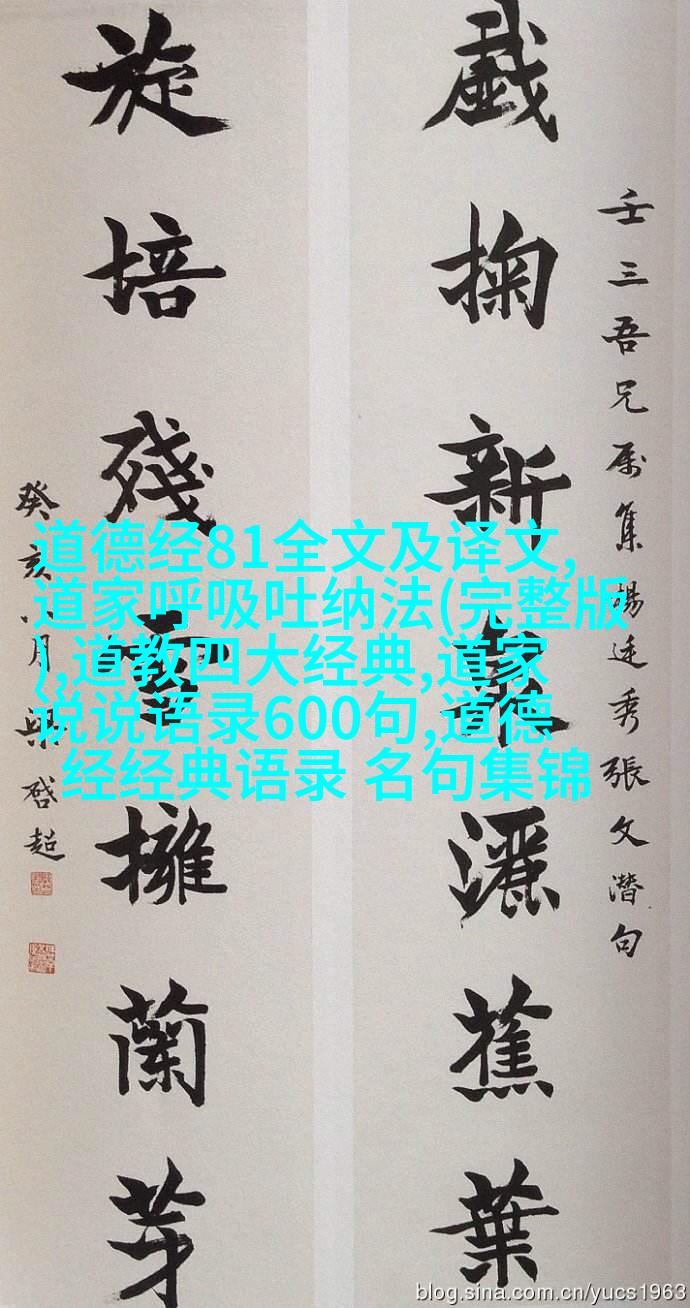 壬三吾兄属集楊廷秀張文潛句
戲掬新泉灑蕉葉
旋培殘雪擁蘭芽
癸亥八月梁啓超
道德经81全文及译文,
道家呼吸吐纳法(完整版
),道教四大经典,道家
说说语录600句,道德
经经典语录 名句集锦
blog.sina.com.cn/yucs1963